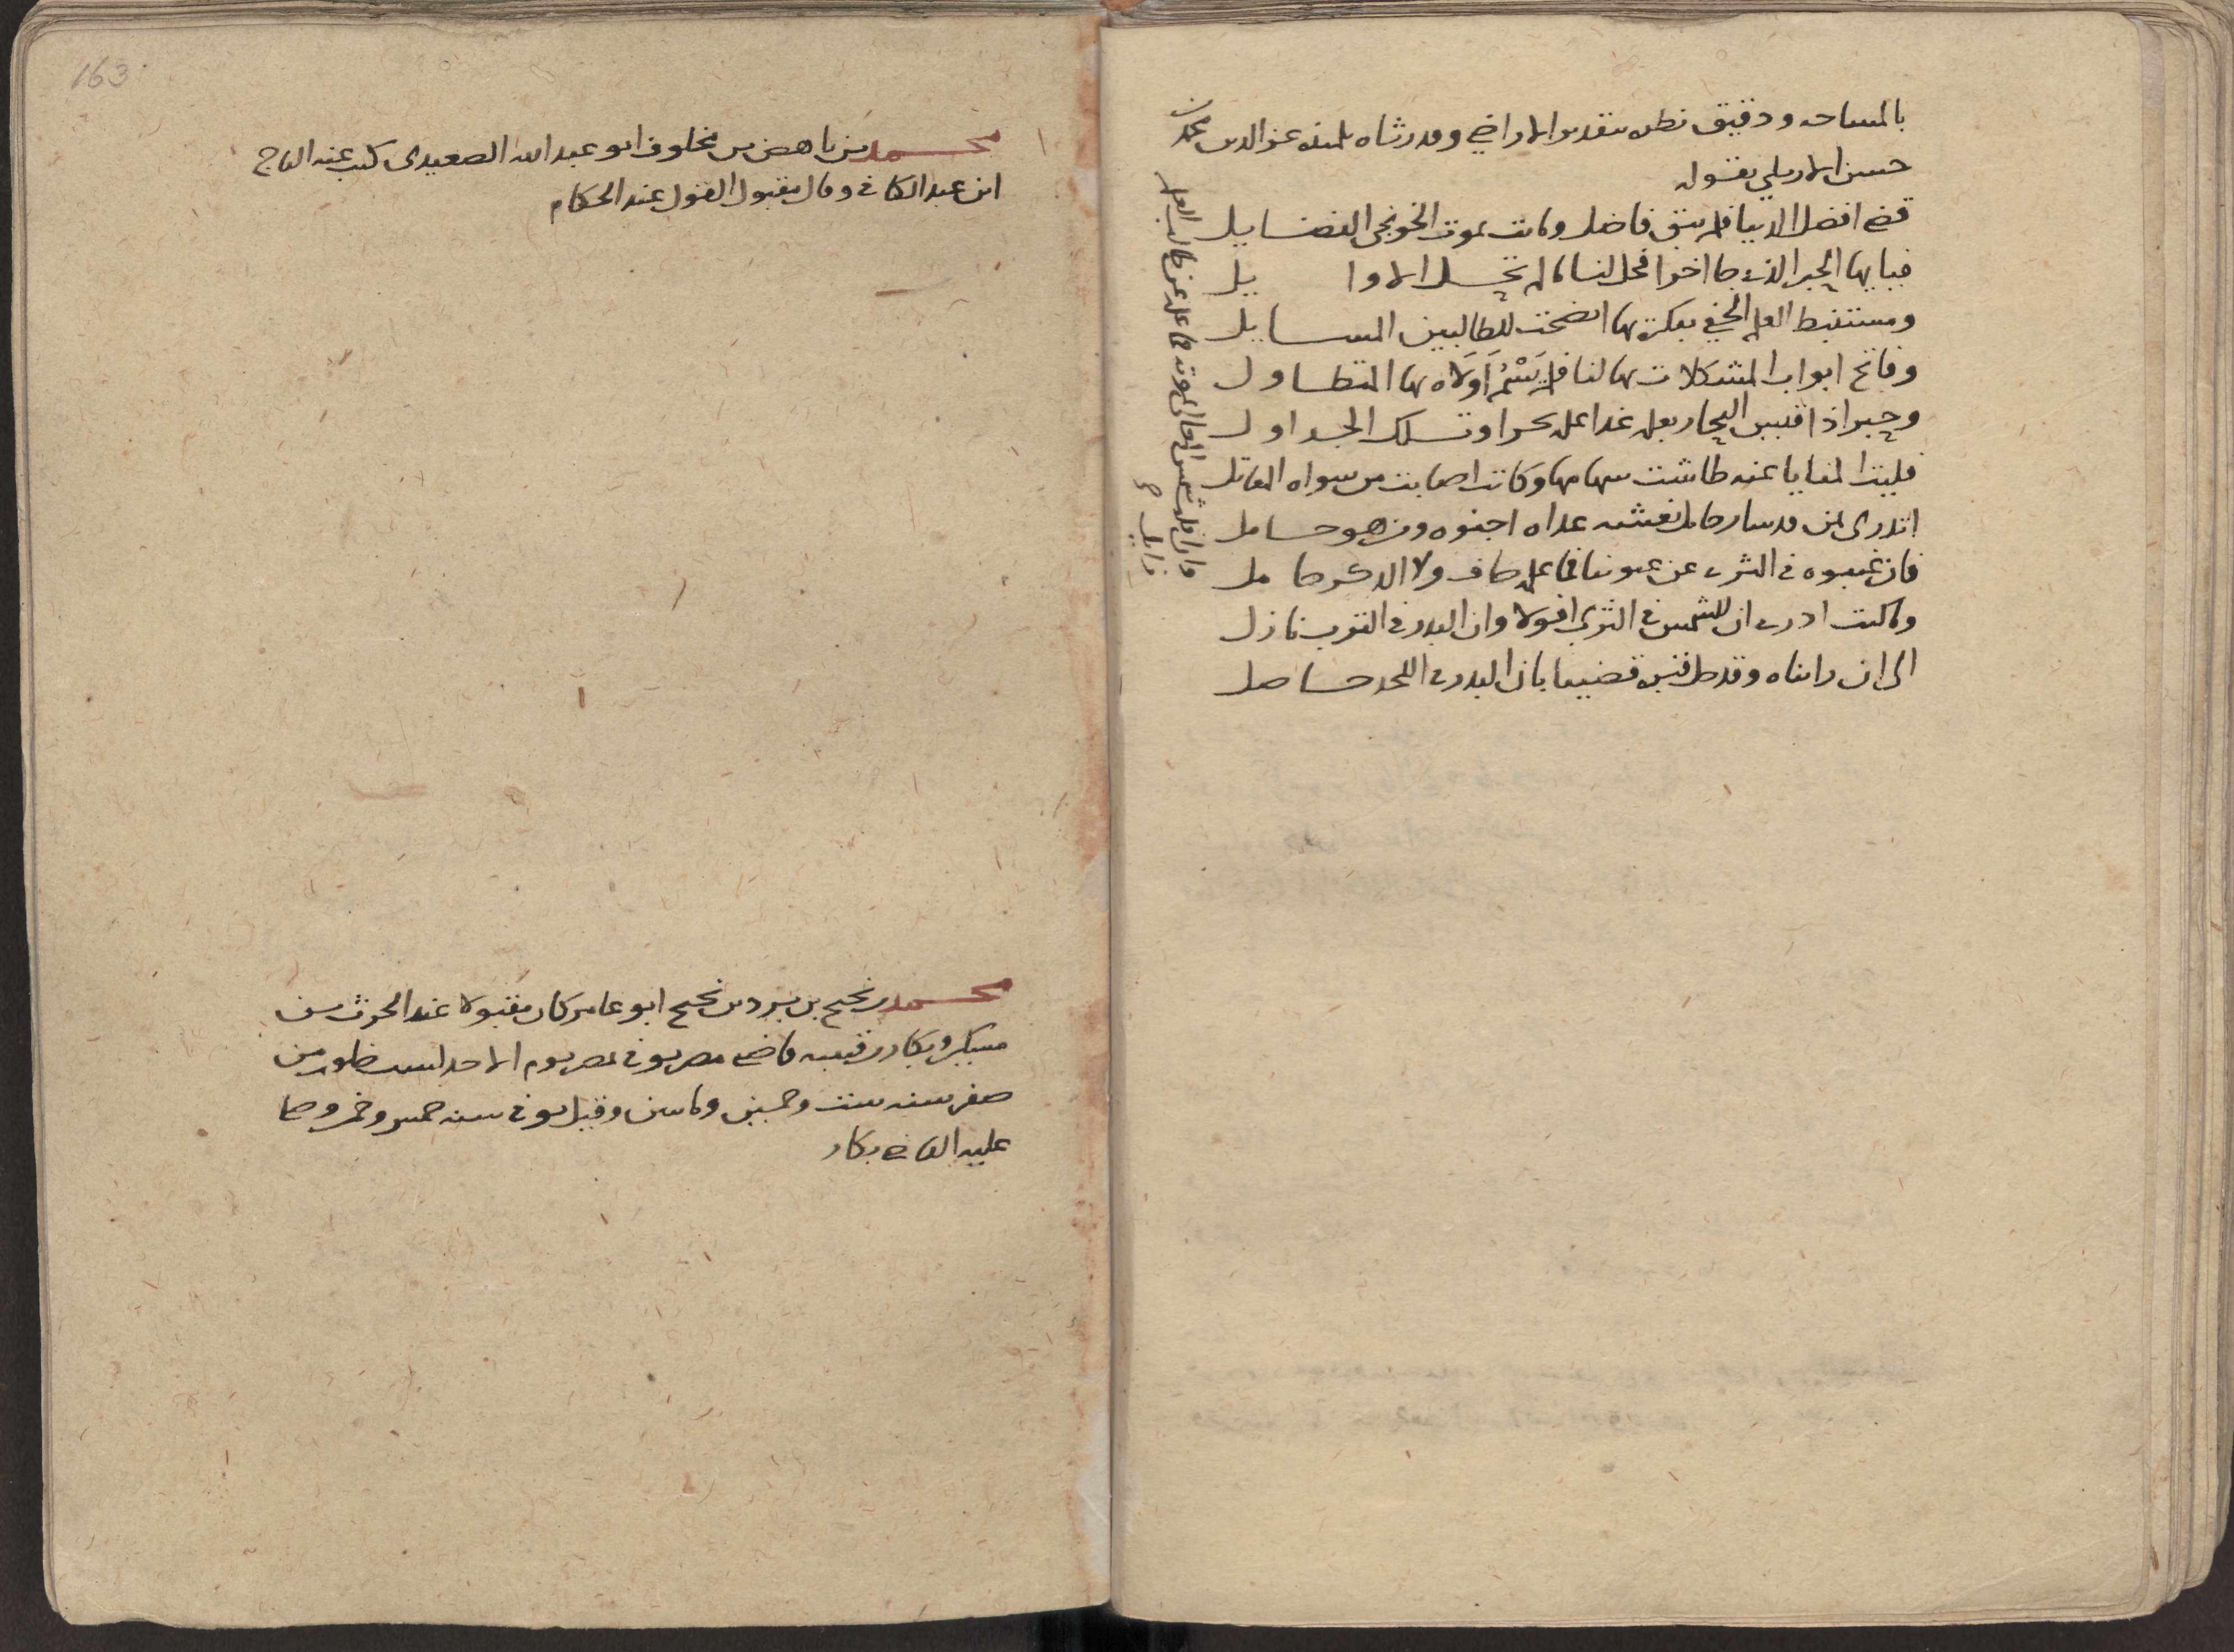 بالمساحه ودقيق نظره بتقدير الاراضي وقد رثاه تلميذه عز الدين محمد بن
حسن الاربلي بقوله
قضى افضل الدنيا فلم يبق فاضل وماتت بموت الخونجي الفضايل
فيايها الحبر الذي جا اخرا فحل لنا ما لم تحل الاوا يل
ومستنبط العلم الخفي بفكرة بها اتضحت للطالبين المسايل
وفاتح ابواب المشكلات بها لنا فلم يسم اولاه بها المتطاول
وحبر اذا قيس البحار بعلمه غدا علمه بحرا وتلك الجداول
فليت المنايا عنه طاشت سهامها وكانت اصابت من سواه المقاتل
اتدري بمن قد سار حامل نعشه عداه اجنوه ومن هو حامل
فان غيبوه في الثرى عن عيوننا فما علمه خاف ولا الذكر خامل
وما كنت ادري ان للشمس في الثرى افولا وان البدر في الترب نازل
الى ان رايناه وقد حل قبره قضينا بان البدر في اللحد حاصل
وان افلت شمس المعالي بموته فما علمه عن طالب العلم
زايل
163
محمد بن ناهض بن مخلوف ابو عبد الله الصعيدي كتب عنه التاج
ابن عبد الكافي وقال مقبول القول عند الحكام
محمد بن نجيح بن برد بن نجيح ابو عامر كان مقبولا عند الحرث بن
مسكين وبكار بن قتيبه قاضي مصر توفي بمصر يوم الاحد لست خلون من
صفر سنه ست وخمسين وماتين وقيل توفي سنه خمس وخمسين وصلى
عليه القاضي بكار